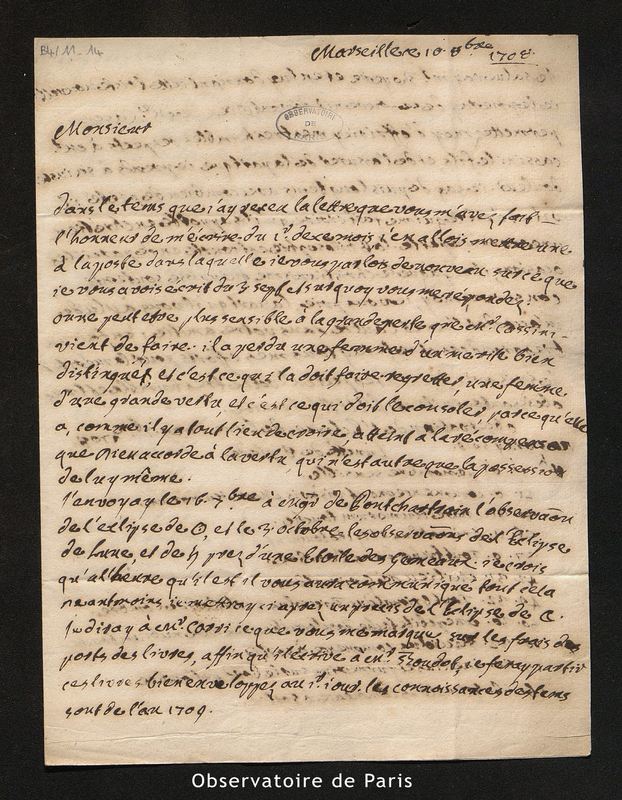 B4/11-14
Marseille ce 10. 8bre 1708.
OBSERVATOIRE DE
Monsieur
dans le tems que j'ay receu la lettre que vous m'avez fait
l'honneur de m'écrire du 1r. de ce mois j'en allois mettre une
à la poste dans laquelle je vous parlois de nouveau sur ce que
je vous avois écrit du 3 sept. et sur quoy vous me répondez.
on ne peut etre plus sensible à la grande perte que Mr. Cassini
vient de faire. il a perdu une femme d'un merite bien
distingué, et c'est ce qui la doit faire regretter, une femme
d'une grande vertu, et c'est ce qui doit le consoler, parce qu'elle
a, comme il y a tout lieu de croire, atteint à la récompense
que Dieu accorde à la vertu, qui n'est autre que la possession
de luy même.
J'envoyay le 16. 7bre à mgr de Pontchartrain l'observaõn
de l'eclipse de ☉, et le 3. octobre les observaõns de l'Eclipse
de Lune, et de ♄ prez d'une Etoile des Gemeaux. je crois
qu'à l'heure qu'il est il vous aura communiqué tout cela
neantmoins je mettray ci aprez un precis de l'Eclipse de ☾.
Je diray à Mr. ce que vous me marquez sur les frais des
ports des livres, affin qu'il écrive à Mr. je feray partir
ces livres bien envelopez au 1r. jour. les connoissances des tems
sont de l'an 1709.
Observatoire de Paris